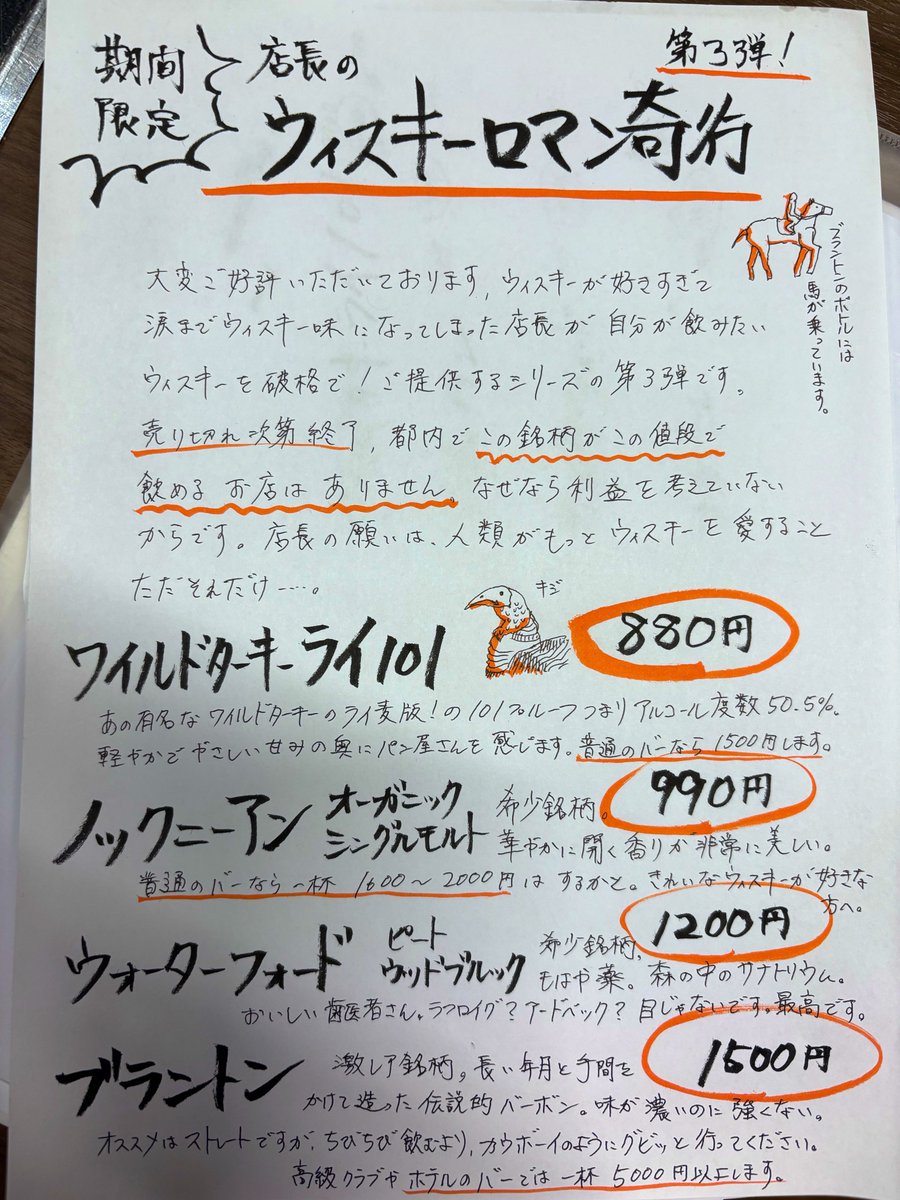 期間
限定
店長の
第3弾!
ウィスキーロマン奇行
ブラントンのボトルには
馬が乗っています。
大変ご好評いただいております，ウィスキーが好きすぎて
涙までウィスキー味になってしまった店長が自分が飲みたい
ウィスキーを破格で！ご提供するシリーズの第3弾です。
売り切れ次第終了，都内でこの銘柄がこの値段で
飲めるお店はありません。なぜなら利益を考えていない
からです。店長の願いは、人類がもっとウィスキーを愛すること
ただそれだけ……。
キジ
ワイルドターキーライ101
880円
あの有名なワイルドターキーのライ麦版！の101プルーフつまりアルコール度数50.5%。
軽やかでやさしい甘みの奥にパン屋さんを感じます。普通のバーなら1500円します。
ノックニーアン
オーガニック
シングルモルト
990円
希少銘柄。
華やかに開く香りが非常に美しい。
普通のバーなら一杯1600〜2000円はするかと。きれいなウィスキーが好きな
方へ。
ウォーターフォード
ピート
ウッドブルック
1200円
希少銘柄，
もはや薬。森の中のサナトリウム。
おいしい歯医者さん。ラフロイグ？アードベック？目じゃないです。最高です。
ブラントン
1500円
激レア銘柄。長い年月と手間を
かけて造った伝説的バーボン。味が濃いのに強くない。
オススメはストレートですが，ちびちび飲むより，カウボーイのようにグビッと行ってください。
高級クラブやホテルのバーでは一杯5000円以上します。